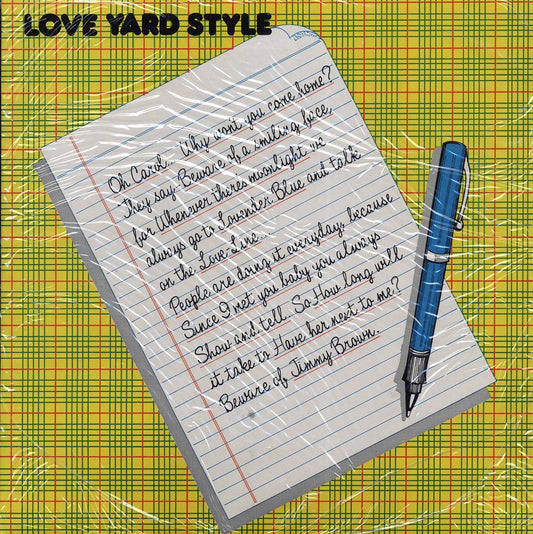 LOVE YARD STYLE
Oh Carol... Why won't you come home?
They say Beware of a smiling face
for Whenever theres moonlight we
always go to Lavender Blue and talk
on the Love Line...
People are doing it everyday, because
Since I met you baby you always
Show and tell. So How long will
it take to Have her next to me?
Beware of Jimmy Brown.